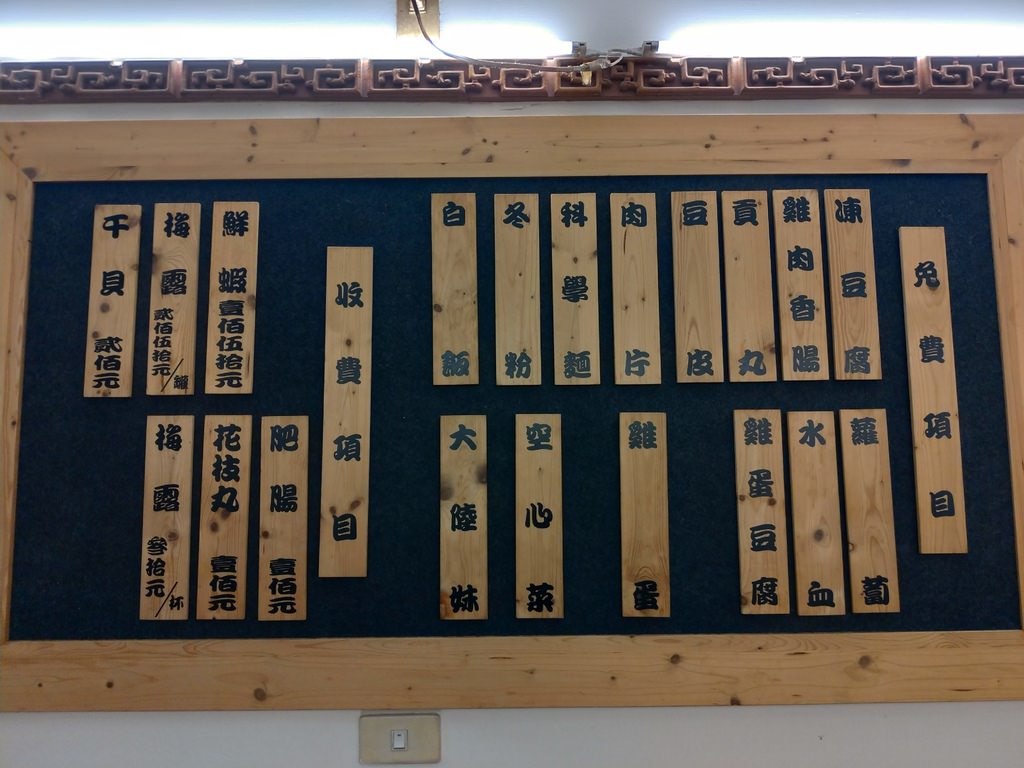 免費項目
凍豆腐
雞肉香腸
貢丸
豆皮
肉片
科學麵
冬粉
白飯
蘿蔔
水血
雞蛋豆腐
雞蛋
空心菜
大陸妹
收費項目
鮮蝦壹佰伍拾元
梅露貳佰伍拾元/罐
干貝貳佰元
肥腸壹佰元
花枝丸壹佰元
梅露參拾元/杯